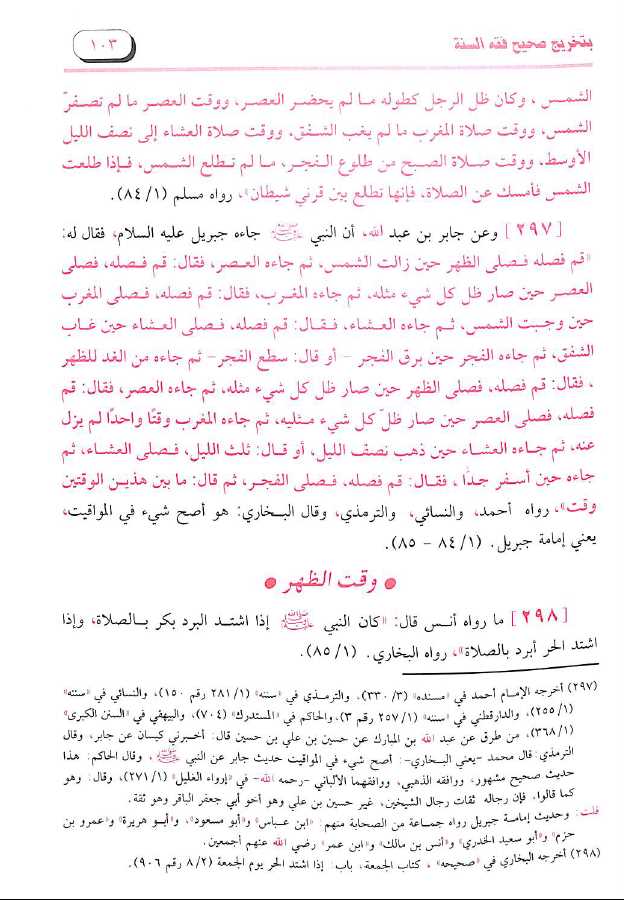 بتخريج صحيح فقه السنة
١٠٣
الشمس ، وكان ظل الرجل كطوله ما لم يحضر العصر، ووقت العصر ما لم تصفرّ
الشمس، ووقت صلاة المغرب ما لم يغب الشفق، ووقت صلاة العشاء إلى نصف الليل
الأوسط، ووقت صلاة الصبح من طلوع الفجر، ما لم تطلع الشمس، فإذا طلعت
الشمس فأمسك عن الصلاة، فإنها تطلع بين قرني شيطان»، رواه مسلم (٨٤/١).
[٢٩٧] وعن جابر بن عبد الله، أن النبي ﷺ جاءه جبريل عليه السلام، فقال له:
«قم فصله فصلى الظهر حين زالت الشمس، ثم جاءه العصر، فقال: قم فصله، فصلى
العصر حين صار ظل كل شيء مثله، ثم جاءه المغرب، فقال: قم فصله، فصلى المغرب
حين وجبت الشمس، ثم جاءه العشاء، فقال: قم فصله، فصلى العشاء حين غاب
الشفق، ثم جاءه الفجر حين برق الفجر - أو قال: سطع الفجر- ثم جاءه من الغد للظهر
، فقال: قم فصله، فصلى الظهر حين صار ظل كل شيء مثله، ثم جاءه العصر، فقال: قم
فصله، فصلى العصر حين صار ظلّ كل شيء مثليه، ثم جاءه المغرب وقتًا واحدًا لم يزل
عنه، ثم جاءه العشاء حين ذهب نصف الليل، أو قال: ثلث الليل، فصلى العشاء، ثم
جاءه حين أسفر جدًا ، فقال: قم فصله، فصلى الفجر، ثم قال: ما بين هذين الوقتين
وقت»، رواه أحمد، والنسائي، والترمذي، وقال البخاري: هو أصح شيء في المواقيت،
يعني إمامة جبريل. (٨٤/١ - ٨٥).
• وقت الظهر •
[٢٩٨] ما رواه أنس قال: «كان النبي ﷺ إذا اشتد البرد بكر بالصلاة، وإذا
اشتد الحر أبرد بالصلاة»، رواه البخاري. (٨٥/١).
(٢٩٧) أخرجه الإمام أحمد في «مسنده» (٣٣٠/٣)، والترمذي في «سننه» (٢٨١/١ رقم ١٥٠)، والنسائي في «سننه»
(٢٥٥/١)، والدارقطني في «سننه» (٢٥٧/١ رقم ٣)، والحاكم في «المستدرك» (٧٠٤)، والبيهقي في «السنن الكبرى»
(٣٦٨/١)، من طرق عن عبد الله بن المبارك عن حسين بن علي بن حسين قال: أخبرني كيسان عن جابر، وقال
الترمذي: قال محمد -يعني البخاري-: أصح شيء في المواقيت حديث جابر عن النبي ﷺ، وقال الحاكم: هذا
حديث صحيح مشهور، ووافقه الذهبي، ووافقهما الألباني -رحمه الله- في «إرواء الغليل» (٢٧١/١)، وقال: وهو
كما قالوا، فإن رجاله ثقات رجال الشيخين، غير حسين بن علي وهو أخو أبي جعفر الباقر وهو ثقة.
قلت: وحديث إمامة جبريل رواه جماعة من الصحابة منهم: «ابن عباس» و«أبو مسعود»، و«أبو هريرة» و«عمرو بن
حزم» و«أبو سعيد الخدري» و«أنس بن مالك» و«ابن عمر» رضي الله عنهم أجمعين.
(٢٩٨) أخرجه البخاري في «صحيحه» ، كتاب الجمعة، باب: إذا اشتد الحر يوم الجمعة (٨/٢ رقم ٩٠٦).